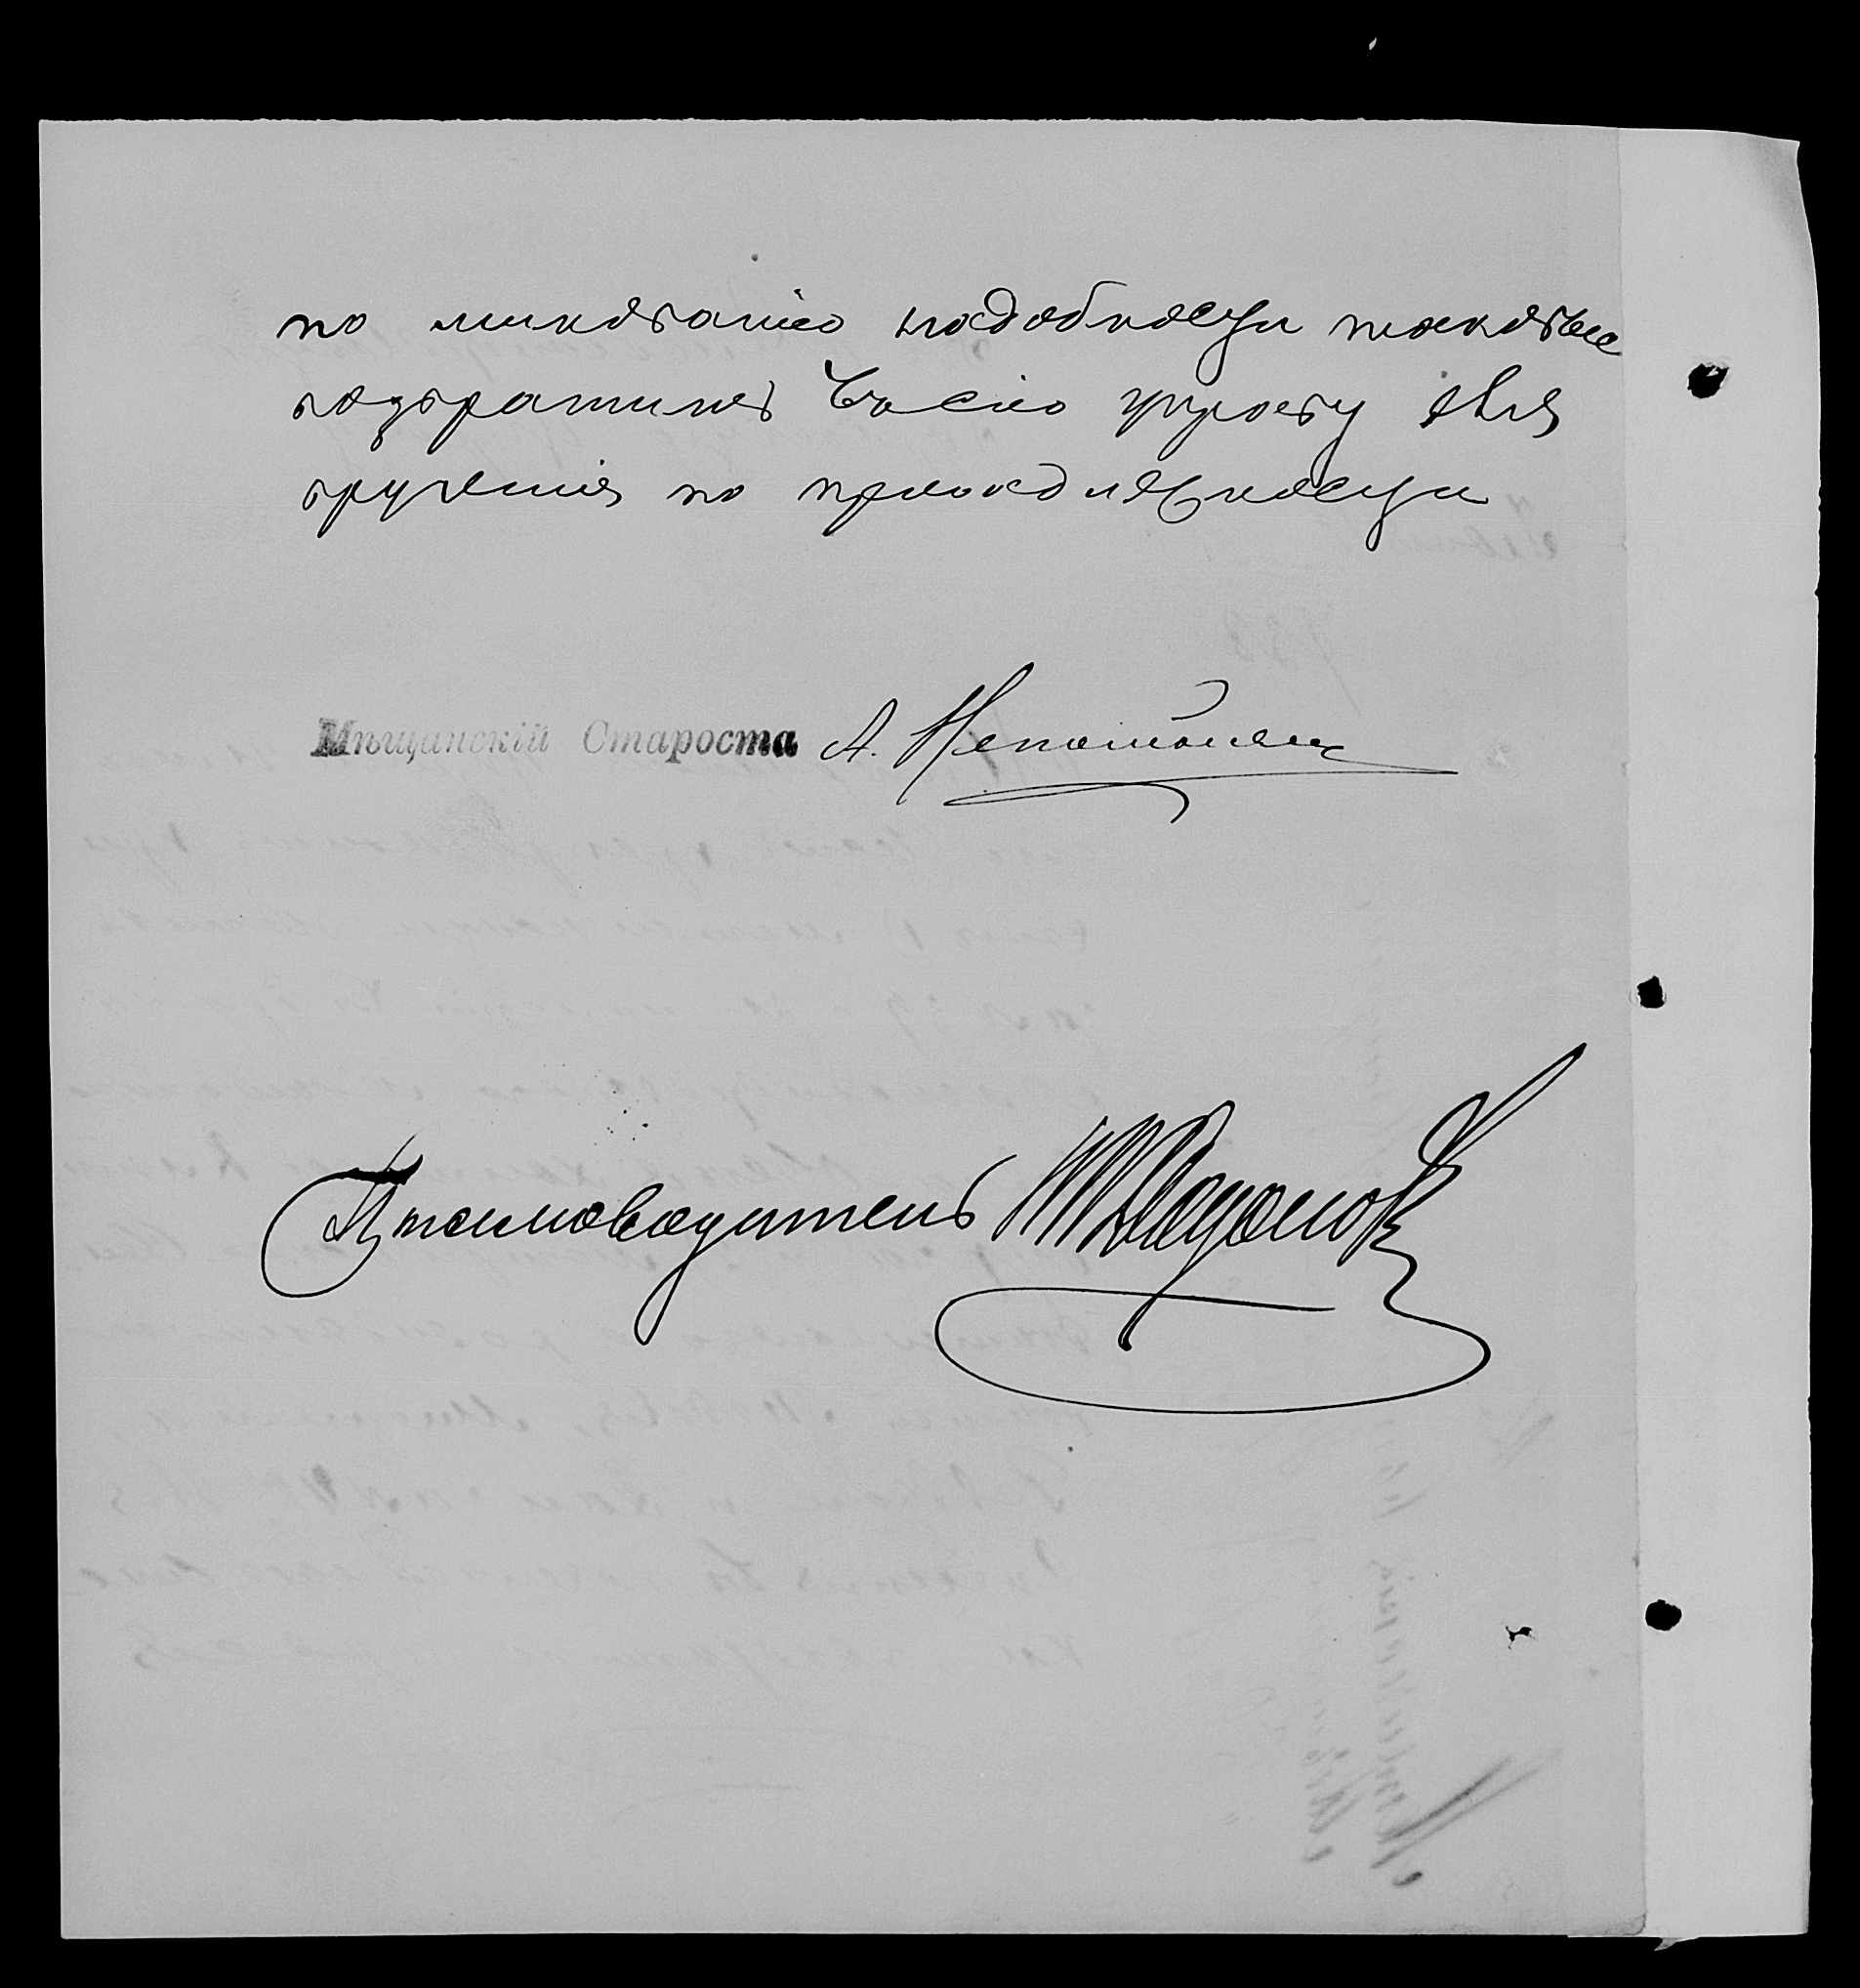 по минованію надобности таковые
возвратить въ сію управу для
врученія по принадлежности
Мѣщанскій Староста А.
Письмоводитель